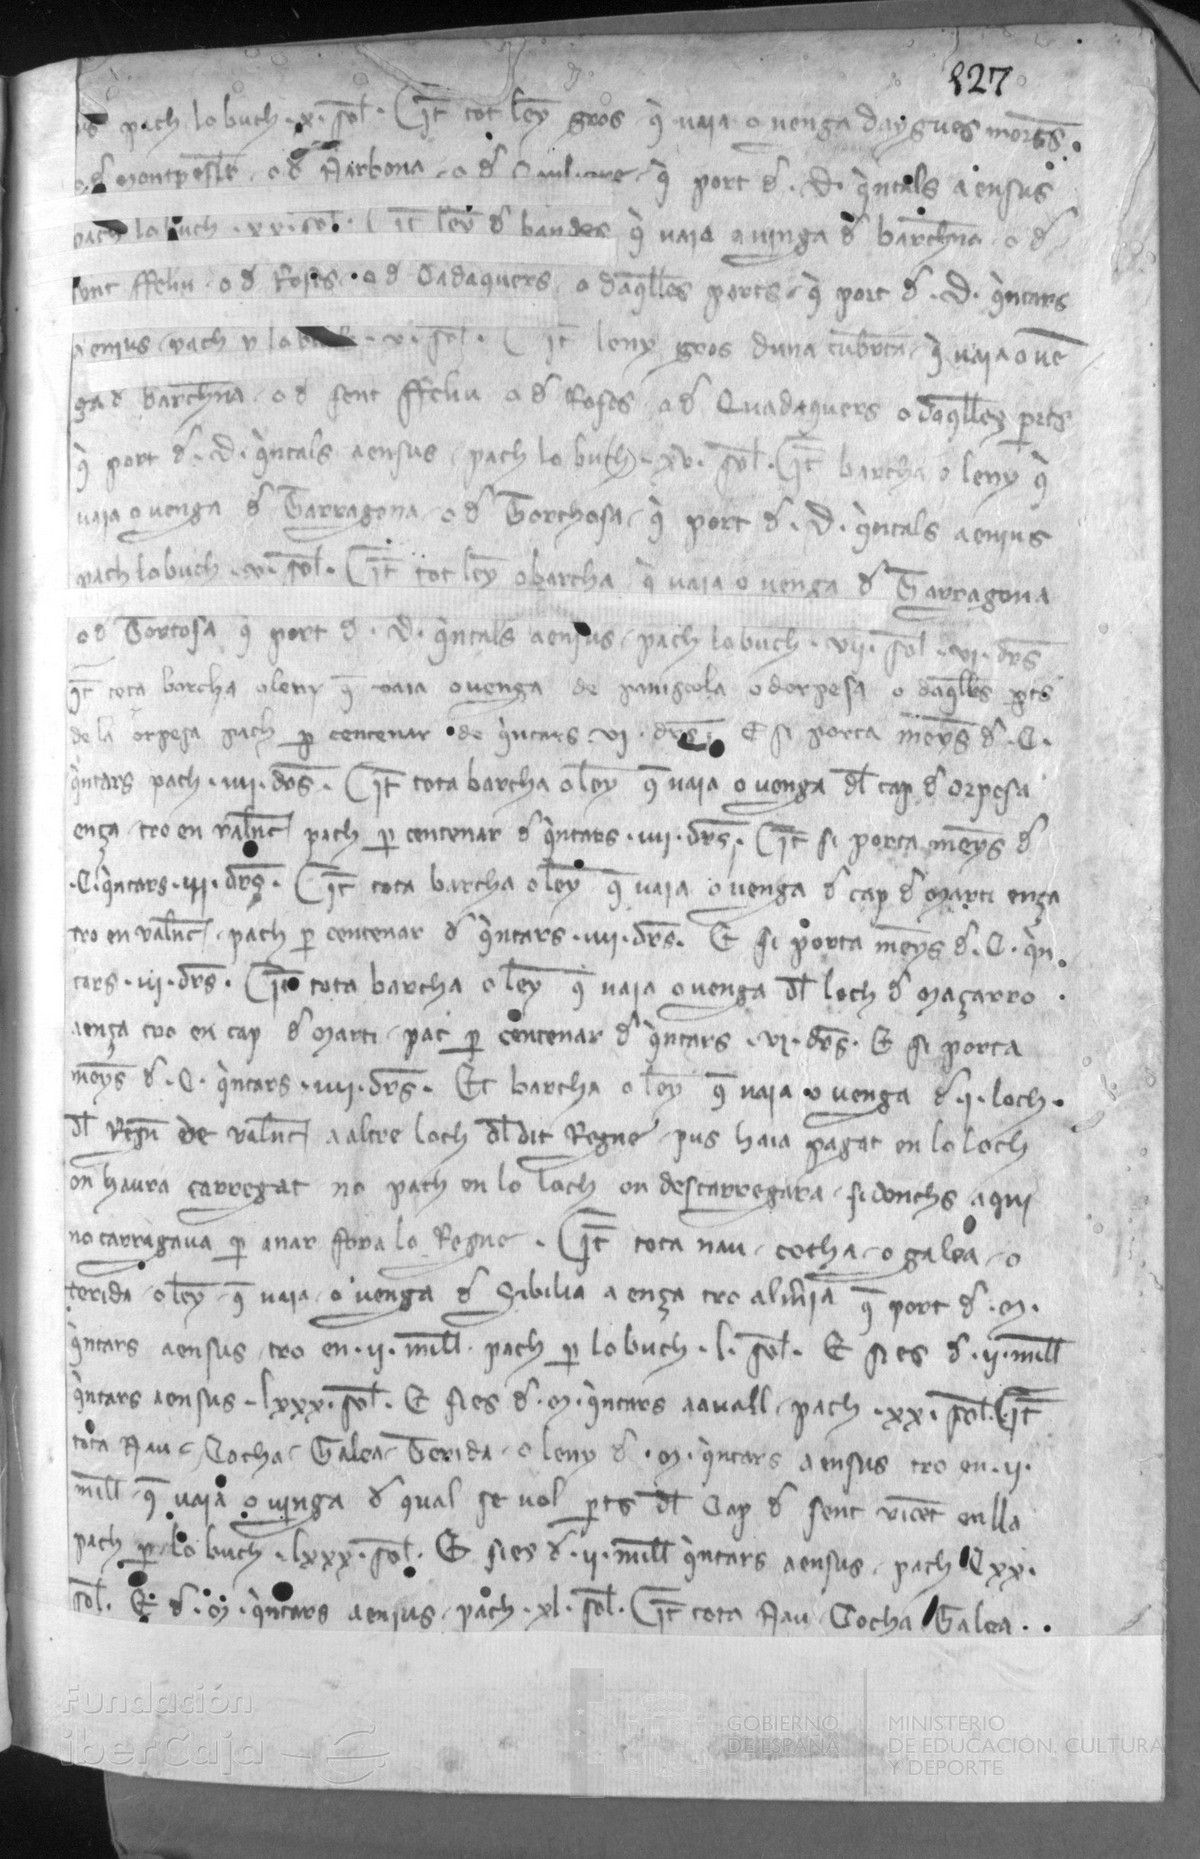 127
pach lo buch .x. sol. Itẽ tot leny gros q̃ vaia o venga daygues mortes
o d montpesler o d Narbona o d q̃ port d .D. q̃ntals aensus
pach lo buch .xx. sol. Itẽ leny d bandes q̃ vaia o vinga d barchna o d
sent ffeliu o d Roses o d Cadaquers o daqlles ports q̃ port d .D. q̃ntars
aensus pach lo buch .v. sol. Itẽ leny gros duna cubrta q̃ vaia o vẽ
ga d barchna o d sent ffeliu o d Roses o d Quadaquers o daqlley pts
q̃ port d .D. q̃ntals aensus pach lo buch .xv. sol. Itẽ barcha o leny q̃
vaia o venga d Tarragona o d Torchosa q̃ port d .D. q̃ntals aensus
pach lo buch .v. sol. Itẽ tot ley o barcha q̃ vaia o venga d Tarragona
o d Tortosa q̃ port d .D. q̃ntals aensus pach lo buch .vii. sol .vi. drs
Itẽ tota barcha o leny q̃ vaia o venga de paniscola o dorpesa o daqlles pts
de la orpesa pach p centenar de q̃ntars .vi. drs. E si porta meys d .C.
q̃ntars pach .iiii. drs. Itẽ tota barcha o ley q̃ vaia o venga dl cap d orpesa
ença tro en valnc pach p centenar d q̃ntars .iiii. drs. Itẽ si porta meys d
.C. q̃ntars .iii. drs. Itẽ tota barcha o ley q̃ vaia o venga d cap d marti ença
tro en valnc pach p centenar d q̃ntars .iiii. drs. E si porta meys d .C. q̃n
tars .iii. drs. Itẽ tota barcha o ley q̃ vaia o venga dl loch d maçarro
aença tro en cap d marti pac p centenar d q̃ntars .vi. drs. E si porta
meys d .C. q̃ntars .iiii. drs. Et barcha o ley q̃ vaia o venga d .i. loch
dl regn de valnc a altre loch dl dit Regne pus haia pagat en lo loch
on haura carregat no pach en lo loch on descarregara si donchs aqui
no carragava p anar ffora lo Regne. Itẽ tota nau cocha o galea o
terida o ley q̃ vaia o venga d Sibilia a ença tro almia q̃ port d .m.
q̃ntars aensus tro en .ii. mill pach p lo buch .l. sol. E si es d .ii. mill
q̃ntars aensus .lxxx. sol. E si es d .m. q̃ntars aavall pach .xx. sol. Itẽ
tota Nau Cocha Galea Terida o leny d .m. q̃ntars aensus tro en .ii.
mill q̃ vaia o vinga d qual se vol pts dl Cap d sent vicẽt enlla
pach p lo buch .lxxx. sol. E si es d .ii. mill q̃ntars aensus pach Cxx.
sol. E d .m. q̃ntars aensus pach .xl. sol. Itẽ tota Nau Cocha Galea
Fundación
iberCaja
GOBIERNO
DE ESPAÑA
MINISTERIO
DE EDUCACIÓN, CULTURA
Y DEPORTE